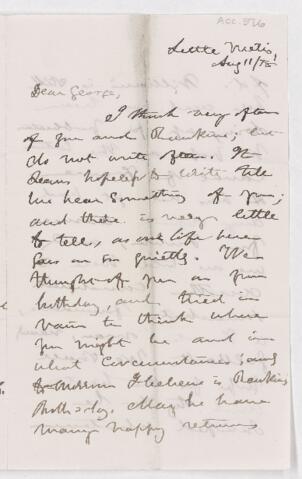 ACC. 576
Little Metis,
Aug 11/75
Dear George,
I think very often
of you and Rankine; but
do not write often. It
seems hopeless to write till
we hear something of you;
and there is very little
to tell, as our life here
goes on so quietly. We
thought of you on your
birthday, and tried in
vain to think where
you might be and in
what circumstances, and
to-morrow I believe is Rankine's
Birthday. May he have
many happy returns